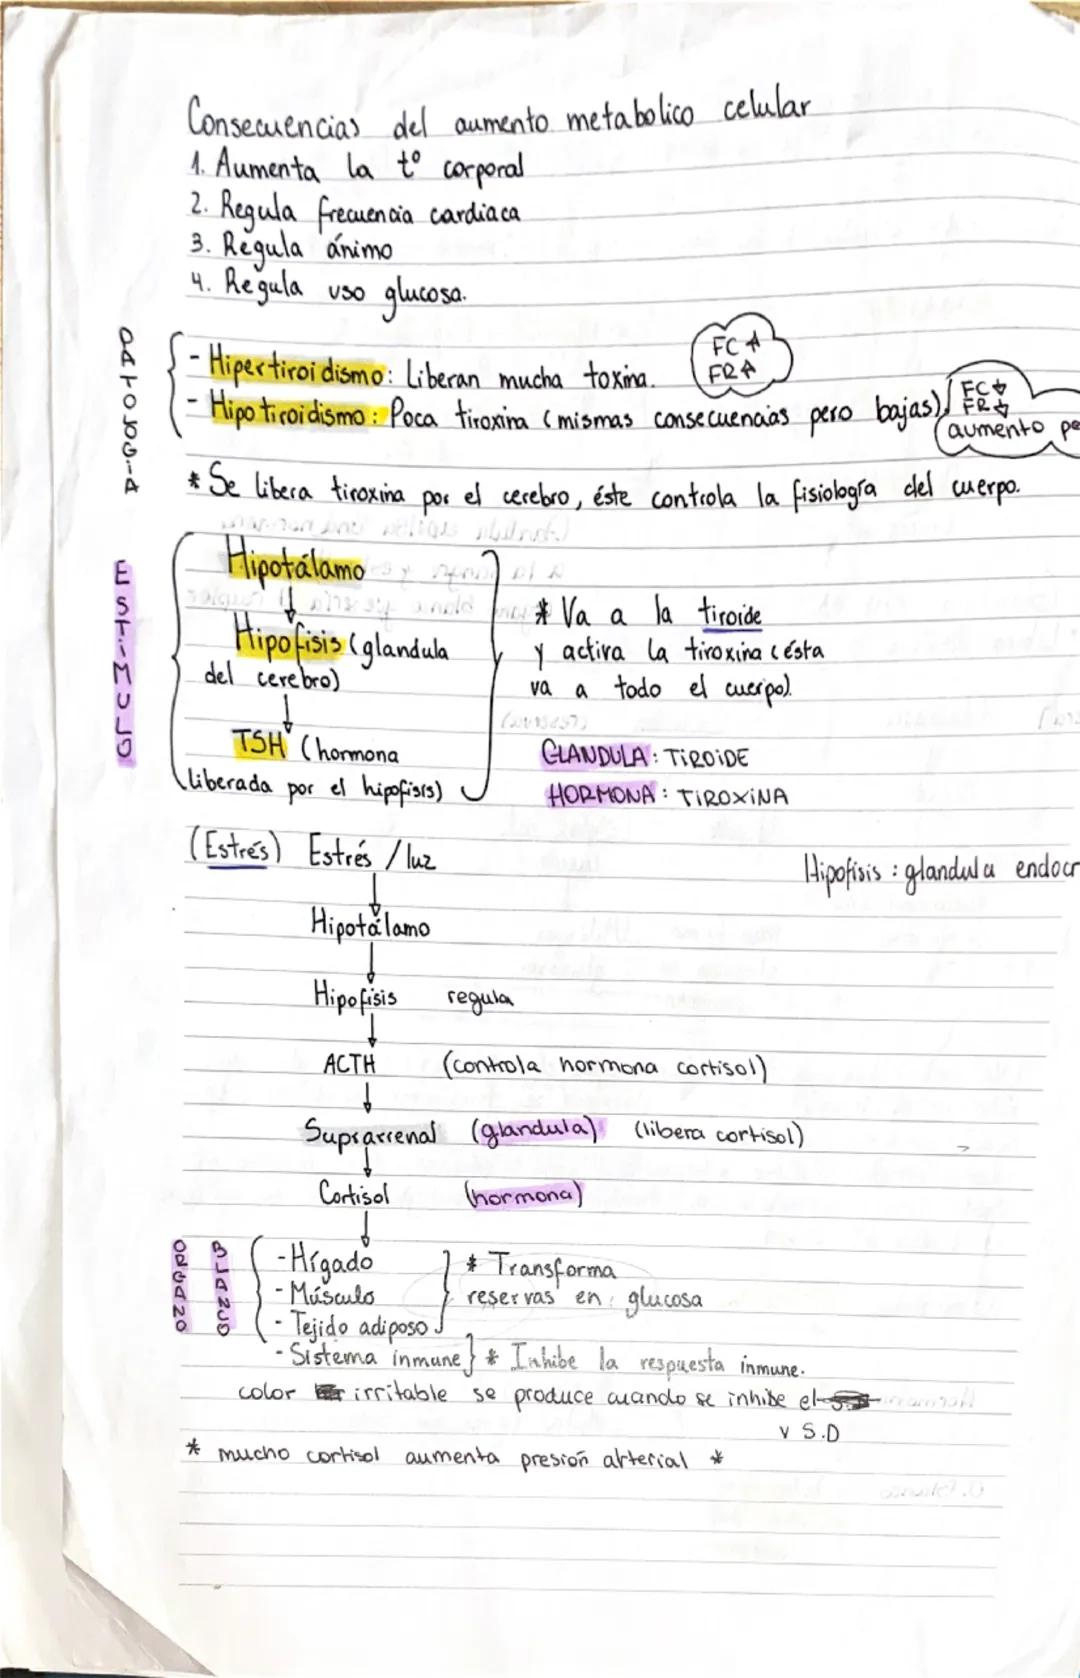 Consecuencias del aumento metabolico celular
1. Aumenta la t° corporal
2. Regula frecuencia cardiaca
3. Regula ánimo
4. Regula uso glucosa.
PATOLOGIA
- Hipertiroidismo: Liberan mucha toxina.
FC ↑
FR ↑
- Hipotiroidismo: Poca tiroxina (mismas consecuencias pero bajas)
FC ↓
FR ↓
aumento pe
* Se libera tiroxina por el cerebro, éste controla la fisiología del cuerpo.
ESTIMULO
Hipotálamo
↓
Hipofisis (glandula
del cerebro)
↓
TSH (hormona
liberada por el hipofisis)
* Va a la tiroide
y activa la tiroxina (ésta
va a todo el cuerpo).
GLANDULA: TIROIDE
HORMONA: TIROXINA
(Estrés) Estrés / luz
Hipofisis: glandula endocr
↓
Hipotálamo
↓
Hipofisis regula
↓
ACTH (controla hormona cortisol)
↓
Suprarrenal (glandula) (libera cortisol)
↓
Cortisol (hormona)
↓
ORGANO
BLANCO
- Hígado
- Músculo
- Tejido adiposo
* Transforma
reservas en glucosa
- Sistema inmune } * Inhibe la respuesta inmune.
color irritable se produce cuando se inhibe el
v S.D
* mucho cortisol aumenta presión arterial *